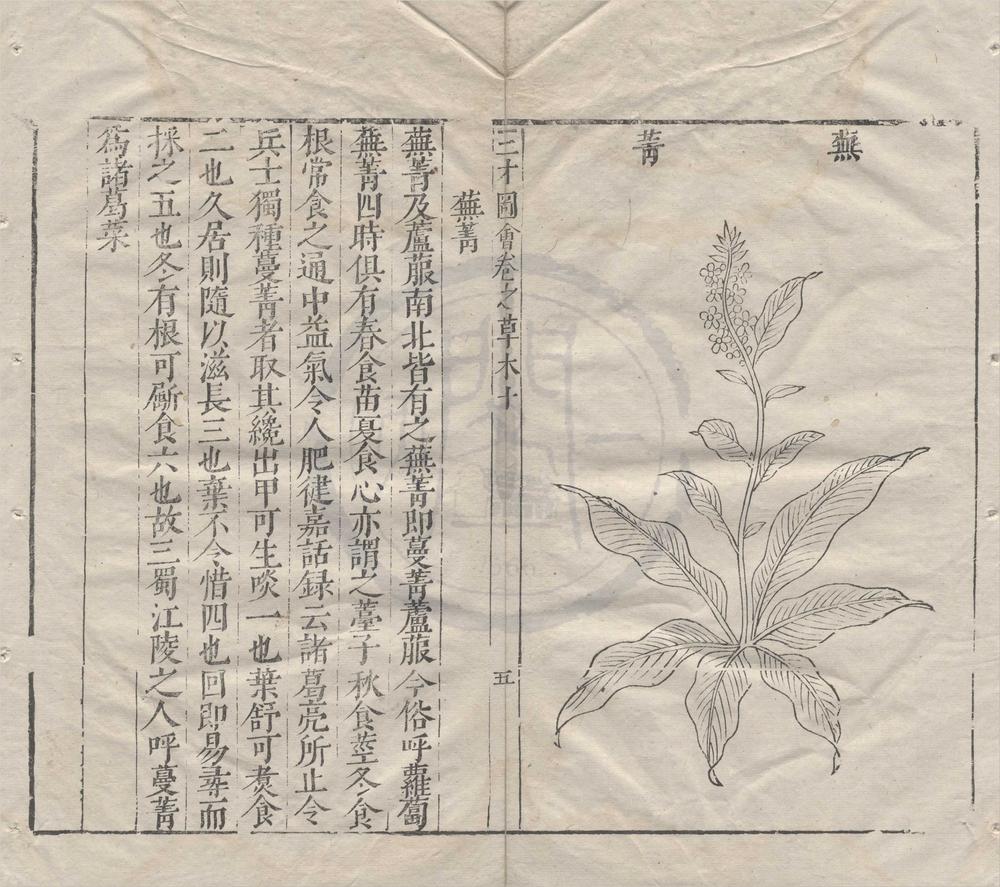 蕪菁
三才圖會卷之草木十
五
蕪菁
蕪菁及蘆菔南北皆有之蕪菁即蔓菁蘆菔今俗呼蘿蔔
蕪菁四時俱有春食苗夏食心亦謂之薹子秋食莖冬食
根常食之通中益氣令人肥健嘉話録云諸葛亮所止令
兵士獨種蔓菁者取其纔出甲可生啖一也葉舒可煑食
二也久居則隨以滋長三也棄不令惜四也回即易尋而
採之五也冬有根可斸食六也故三蜀江陵之人呼蔓菁
為諸葛菜